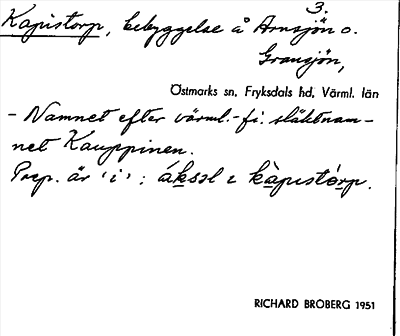 3.
Kapistorp, bebyggelse å Arnsjön o.
Gransjön,
Östmarks sn, Fryksdals hd, Värml. län
- Namnet efter värml.-fi. släktnam-
net Kauppinen.
Prep. är 'i': áksəl i kàpistórp.
RICHARD BROBERG 1951